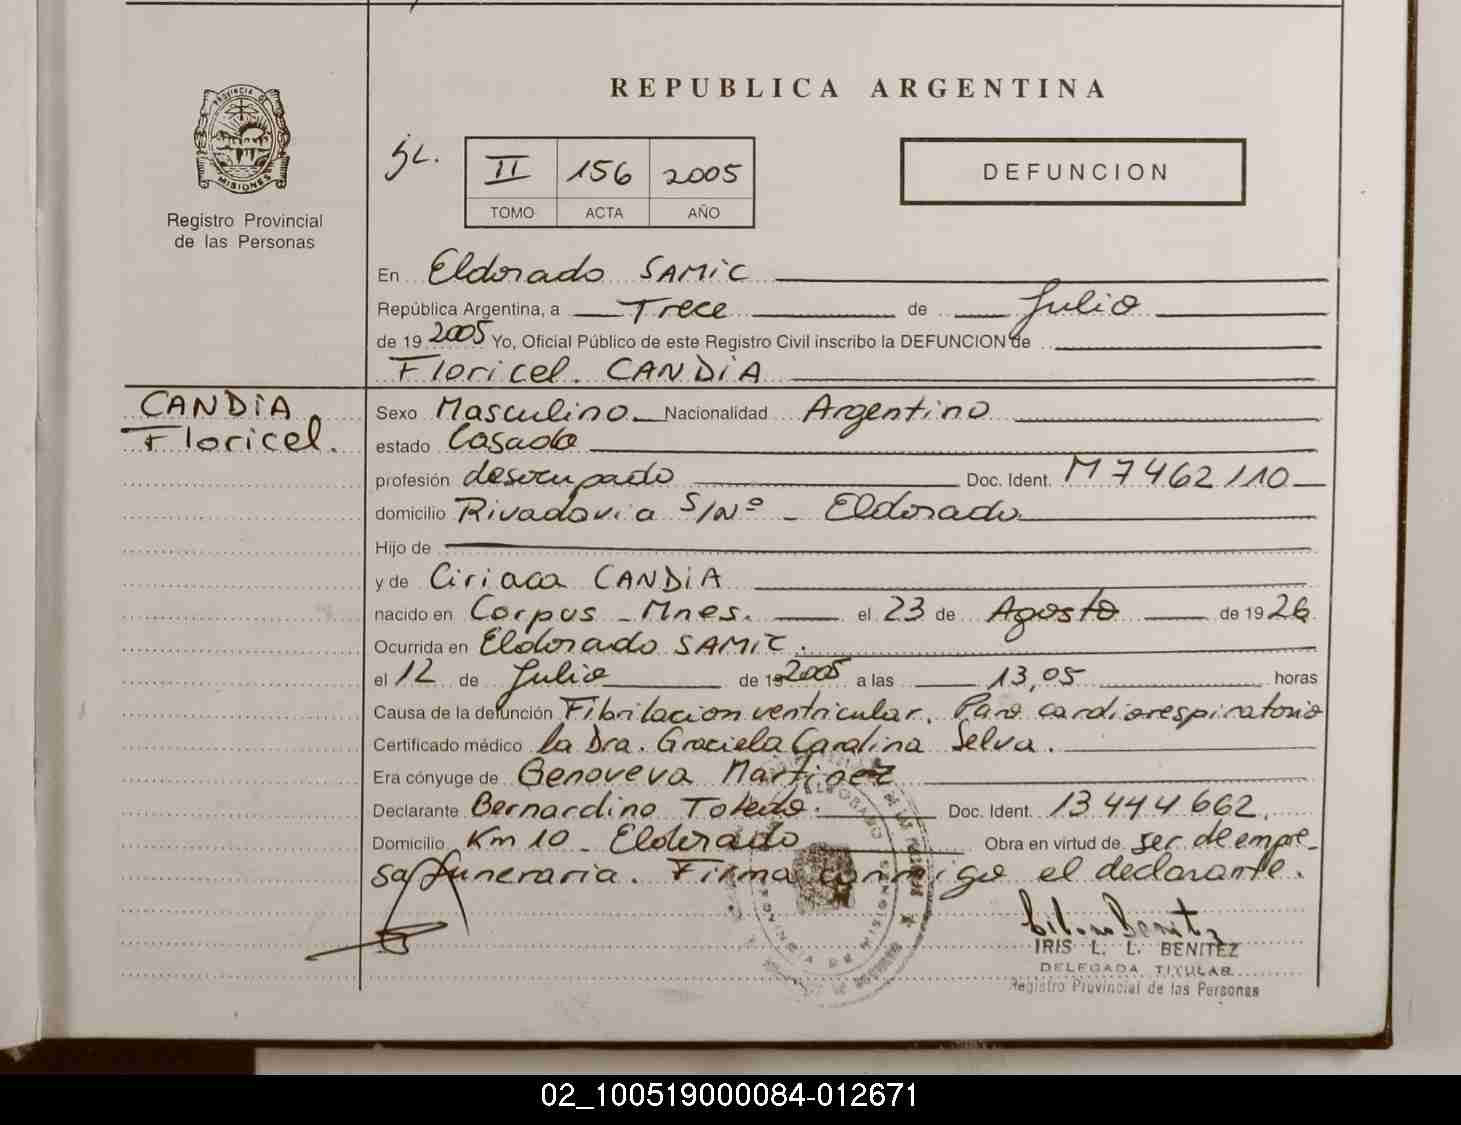 REPUBLICA ARGENTINA
PROVINCIA DE
MISIONES
Registro Provincial
de las Personas
II 156 2005
TOMO ACTA AÑO
DEFUNCION
En Eldorado SAMIC
República Argentina, a Trece de Julio
de 19 2005 Yo, Oficial Público de este Registro Civil inscribo la DEFUNCION de
Floricel. CANDIA
CANDIA
Floricel.
Sexo Masculino Nacionalidad Argentino
estado Casado
profesión desocupado Doc. Ident. M 7462110
domicilio Rivadavia S/Nº - Eldorado
Hijo de
y de Ciriaca CANDIA
nacido en Corpus - Mnes. el 23 de Agosto de 19 26
Ocurrida en Eldorado SAMIC.
el 12 de Julio de 19 2005 a las 13,05 horas
Causa de la defunción Fibrilacion ventricular. Paro cardiorespiratorio
Certificado médico la Dra. Graciela Carolina Selva.
Era cónyuge de Genoveva Martinez
Declarante Bernardino Toledo. Doc. Ident. 13444662.
Domicilio Km 10 - Eldorado Obra en virtud de ser de empre-
sa funeraria. Firma conmigo el declarante.
IRIS L. L. BENITEZ
DELEGADA TITULAR
Registro Provincial de las Personas
PROVINCIA DE MISIONES
02_100519000084-012671